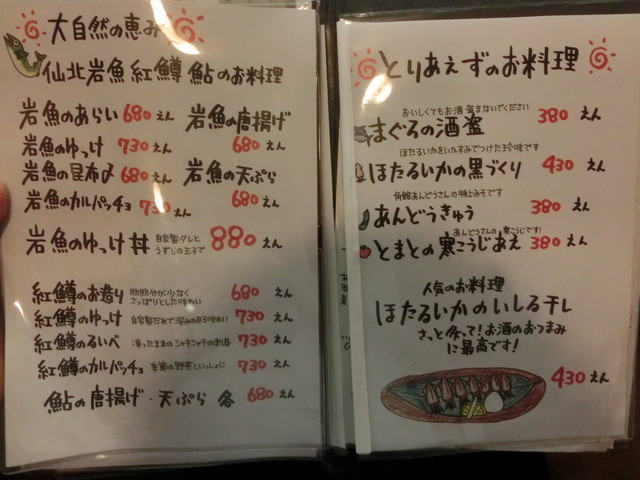 大自然の恵み
仙北岩魚 紅鱒 鮎のお料理
岩魚のあらい 680えん
岩魚のゆっけ 730えん
岩魚の昆布〆 680えん
岩魚のカルパッチョ 730えん
岩魚の唐揚げ
680えん
岩魚の天ぷら
680えん
岩魚のゆっけ丼 自家製ダレと
うずらの玉子で 880えん
紅鱒のお造り 脂肪分が少なく
さっぱりとした味わい 680えん
紅鱒のゆっけ 自家製だれで深みのある味わい 730えん
紅鱒のるいべ 凍ったままのシャキシャキの刺身 730えん
紅鱒のカルパッチョ 季節の野菜といっしょに 730えん
鮎の唐揚げ・天ぷら 各 680えん
とりあえずのお料理
おいしくてもお酒盗まないでください
まぐろの酒盗 380えん
ほたるいかをいかすみでつけた珍味です
ほたるいかの黒づくり 430えん
角館あんどうさんの特上みそです
あんどうきゅう 380えん
あんどうさんの寒こうじです!
とまとの寒こうじあえ 380えん
人気のお料理
ほたるいかのいしる干し
さっと炙って!お酒のおつまみ
に最高です!
430えん